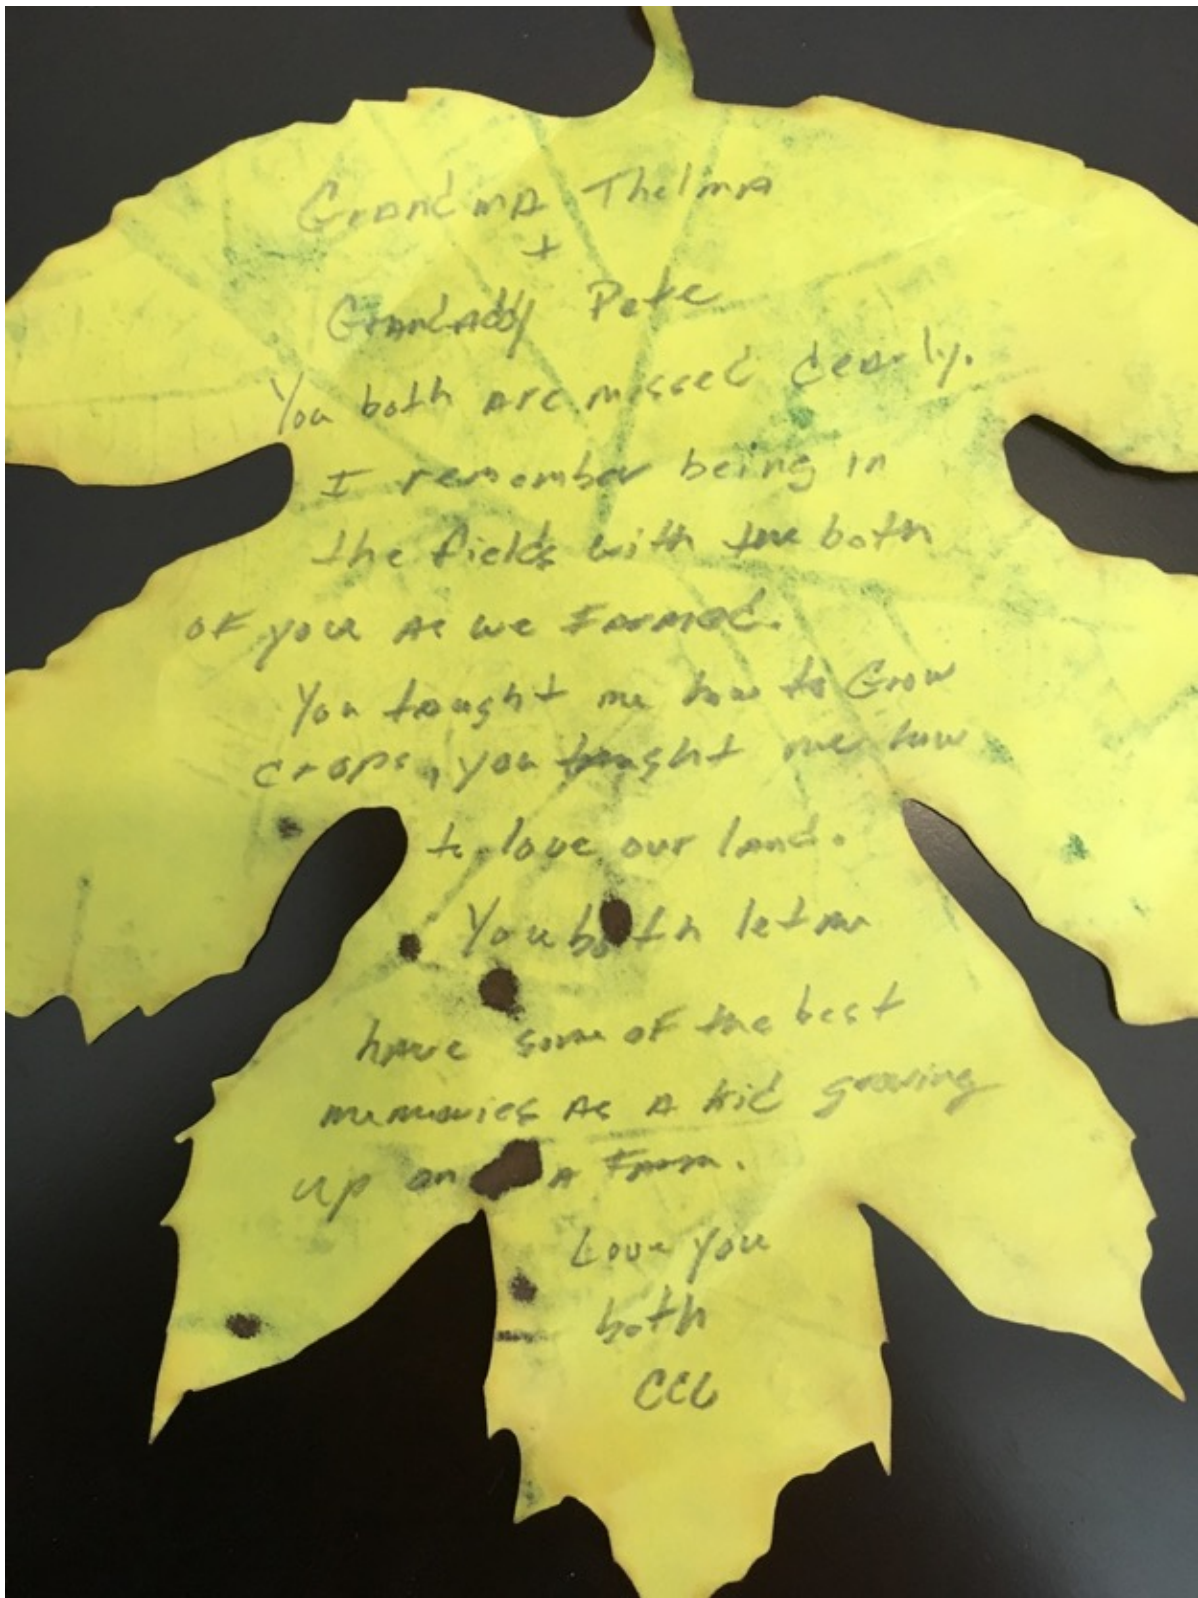 Grandma Thelma
+
Grandaddy Pete
You both are missed dearly.
I remember being in
the fields with the both
of you as we Farmed.
You taught me how to Grow
crops, you taught me how
to love our land.
You both let me
have some of the best
memories as a kid growing
up on a Farm.
Love you
both
CCL